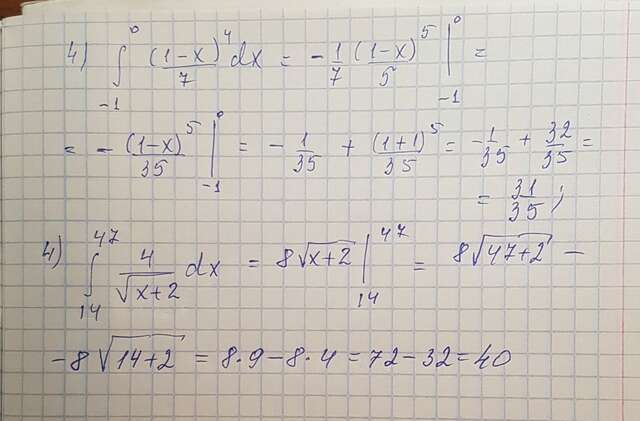 4) ∫_{-1}^{0} (1-x)^4/7 dx = -1/7 (1-x)^5/5 |_{-1}^{0} =
= -(1-x)^5/35 |_{-1}^{0} = -1/35 + (1+1)^5/35 = -1/35 + 32/35 =
= 31/35;
4) ∫_{14}^{47} 4/√(x+2) dx = 8√(x+2) |_{14}^{47} = 8√(47+2) -
-8√(14+2) = 8·9-8·4=72-32=40